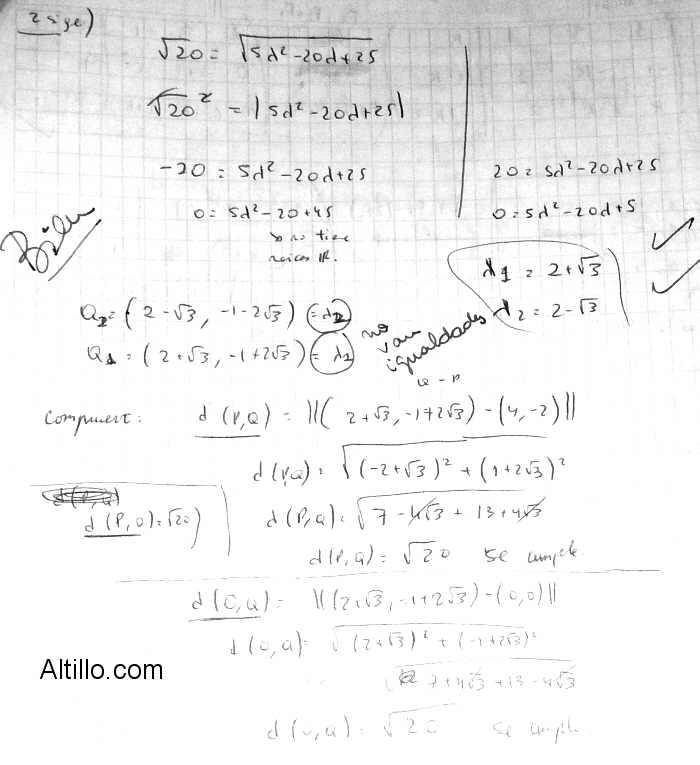 2 sige)
√20 = √5λ²-20λ+25
√20² = |5λ²-20λ+25|
-20 = 5λ²-20λ+25
0 = 5λ²-20+45
no tiene
raices ℝ.
20 = 5λ²-20λ+25
0 = 5λ²-20λ+5
λ1 = 2+√3
λ2 = 2-√3
Q2 = (2-√3, -1-2√3) = λ2
Q1 = (2+√3, -1+2√3) = λ1
no
van
igualdades
Q - P
d(P,Q) = ||(2+√3, -1+2√3) - (4,-2)||
d(P,Q) = √(-2+√3)² + (1+2√3)²
d(P,0)=√20
d(P,Q) = √7-4√3 + 13+4√3
d(P,Q) = √20 se cumple.
d(0,Q) = ||(2+√3, -1+2√3) - (0,0)||
d(0,Q) = √(2+√3)² + (-1+2√3)²
√7+4√3+13-4√3
d(0,Q) = √20 se cumple.
Altillo.com